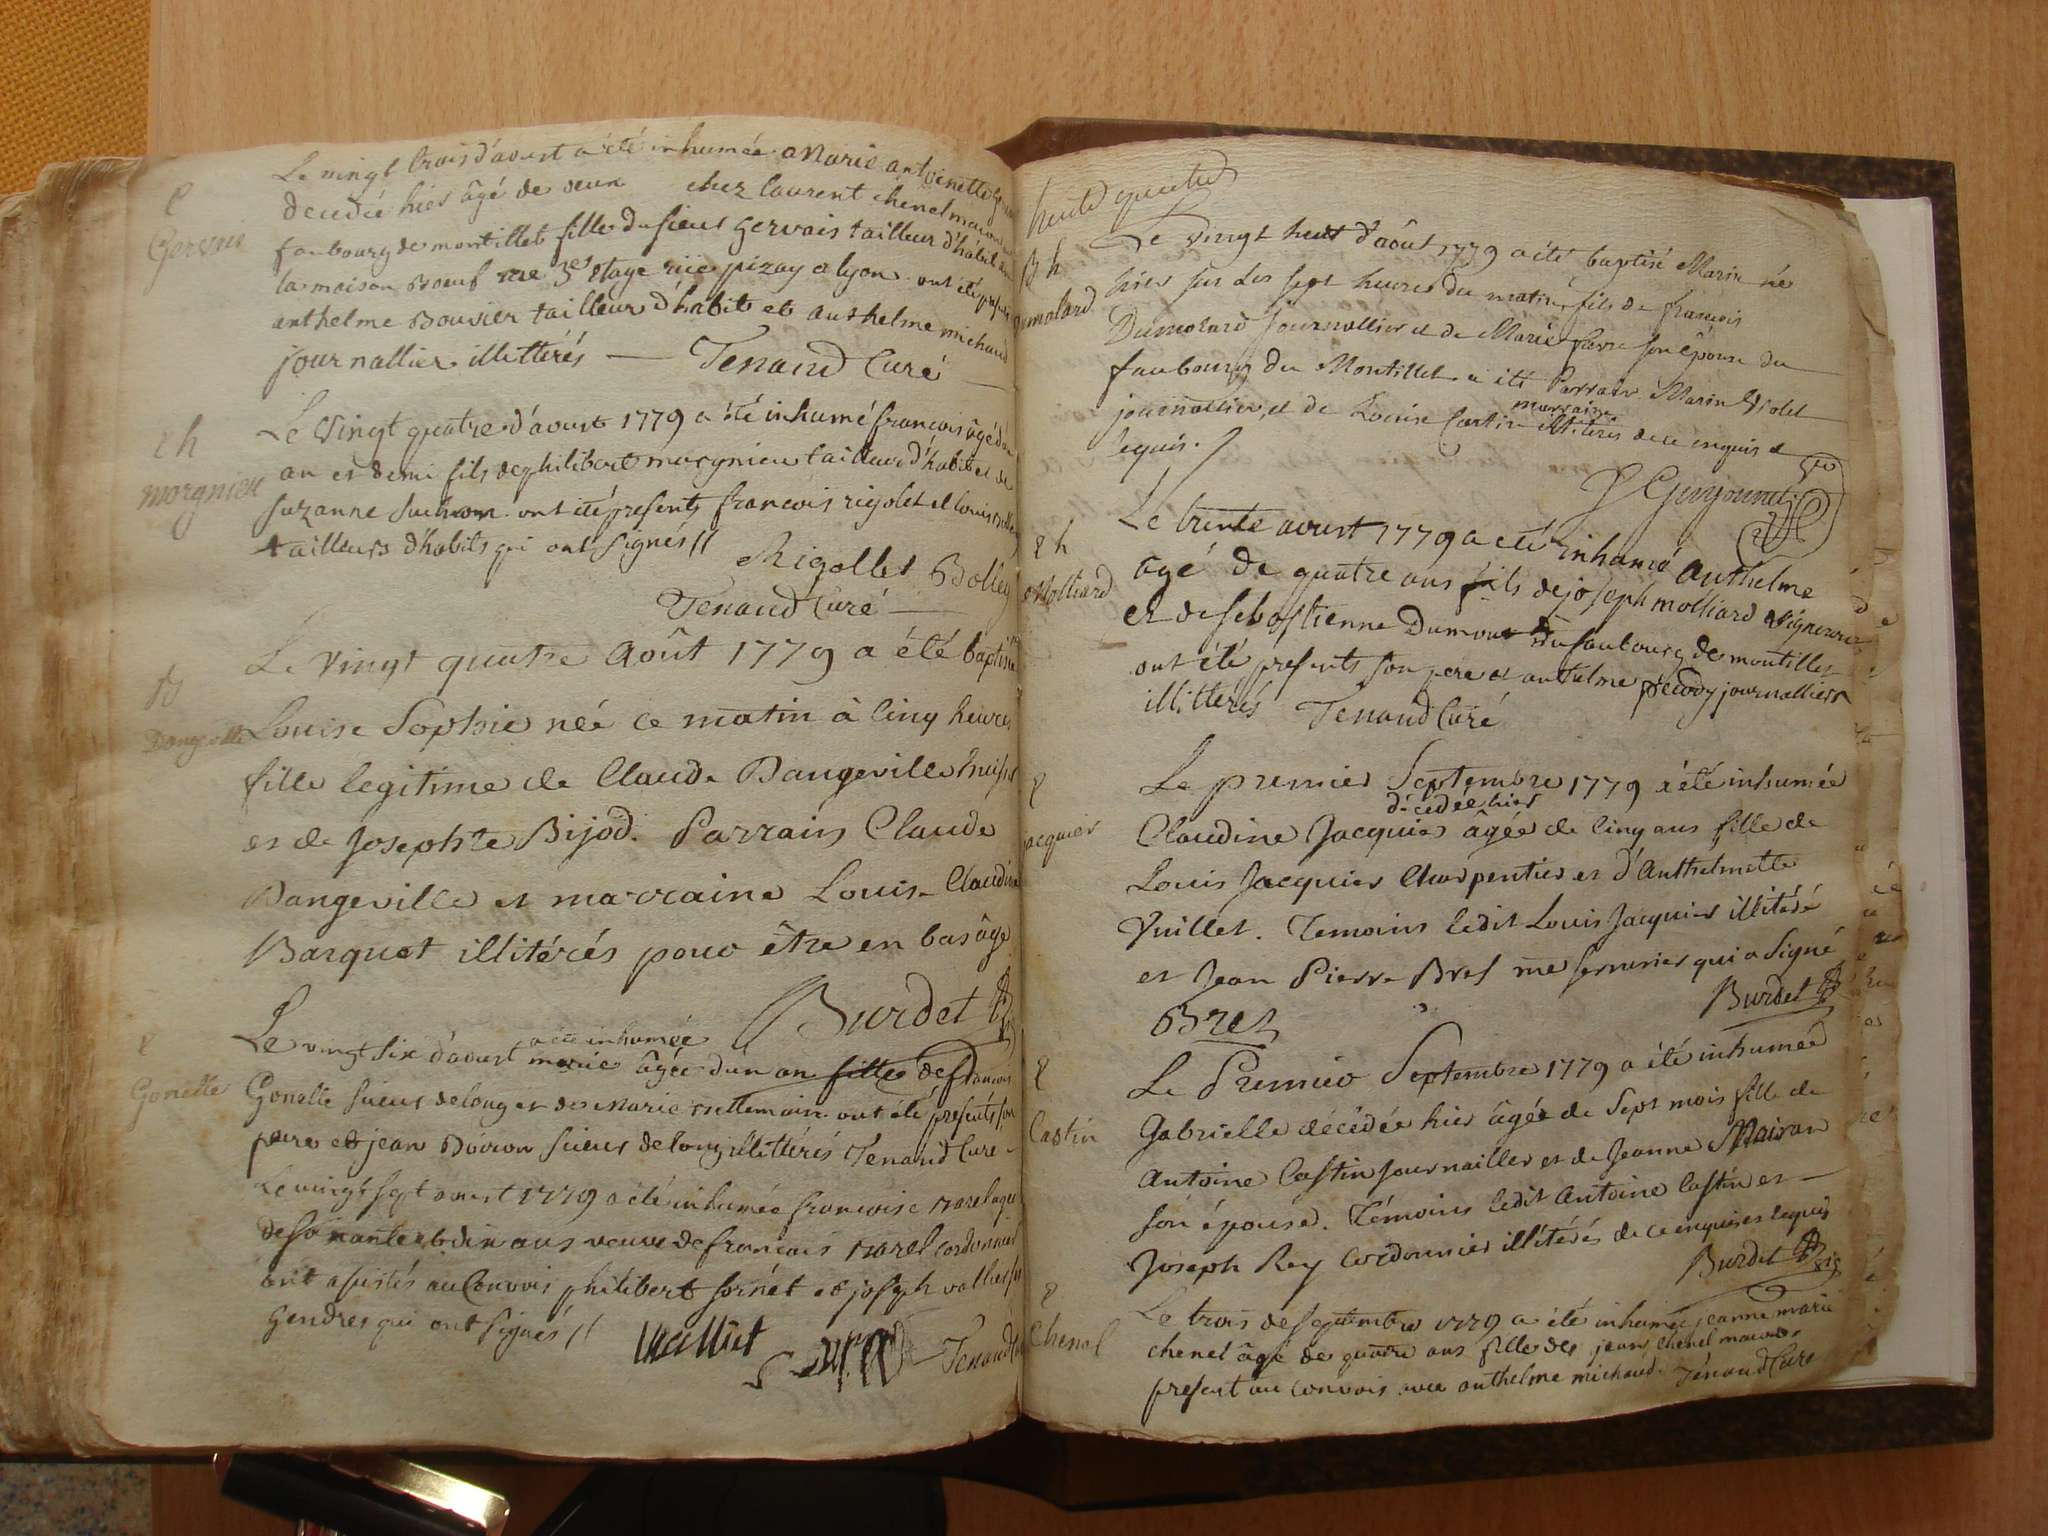 Le vingt trois d'aoust a été inhumée Marie antoinette
decedée hier âgé de deux chez laurent chenel
faubourg de montillet fille du sieur gervais tailleur d'habit
la maison Boeuf rue 3e etage rüe pizay a lyon. ont été
anthelme Bouvier tailleur d'habits et anthelme michaud
journallier illittérés — Tenand Curé
Le vingt quatre d'aoust 1779 a été inhumé francois âgé d'un
an et demi fils de philibert morgnieu tailleur d'habits et de
suzanne ont été presents francois rigolet et louis
tailleurs d'habits qui ont signés //
Rigollet Bolley
Tenand Curé
ch
morgnieu
Le vingt quatre Août 1779 a été baptisée
Louise Sophie née ce matin à cinq heures
fille legitime de Claude Dangeville huissier
et de Josephte Bijod. Parrain Claude
Dangeville et marraine Louise Claudine
Barquet illitérés pour être en bas âge
Burdet
B
Dangeville
Le vingt six d'aoust a été inhumée marie âgée d'un an fille de francois
Gonette sieur de long et de marie ont été presents son
pere et jean Boiron sieur de long illittérés Tenand Curé
Gonette
Le vingt sept aoust 1779 a été inhumée francoise
de soixante et dix ans veuve de francois cordonnier
ont assistés au Convois philibert et joseph vallier
gendres qui ont signés //
Tenand
Le vingt huit d'août 1779 a été baptisé Marin né
hier sur les sept heures du matin, fils de francois
Dumolard journallier et de Marie favre son épouse du
faubourg du Montillet a été Parrain Marin Violet
journallier, et de Louise Castin marraine illitérés de ce enquis et
requis.
Guyonnet
B h
Dumolard
Le trente aoust 1779 a été inhumé Anthelme
agé de quatre ans fils de joseph molliard vigneron
et de sebastienne Dumoux du faubourg de montillet
ont été presents son pere et anthelme journalliers
illittérés Tenand Curé
molliard
Le premier Septembre 1779 a été inhumée
Claudine Jacquier décédée hier âgée de cinq ans fille de
Louis Jacquier Charpentier et d'Anthelmette
Vuillet. Temoins ledit Louis Jacquier illitéré
et Jean Pierre Bret me serrurier qui a signé
Bret Burdet
Jacquier
Le Premier Septembre 1779 a été inhumée
Gabrielle décédée hier âgée de Sept mois fille de
Antoine Castin journailler et de Jeanne Mairan
son épouse. Témoins ledit Antoine Castin et
Joseph Rey cordonnier illitérés de ce enquis et requis
Burdet
Castin
Le trois de septembre 1779 a été inhumée jeanne marie
chenel âgé de quatre ans fille de jean chenel
present au convois avec anthelme michaud. Tenand Curé
Chenel